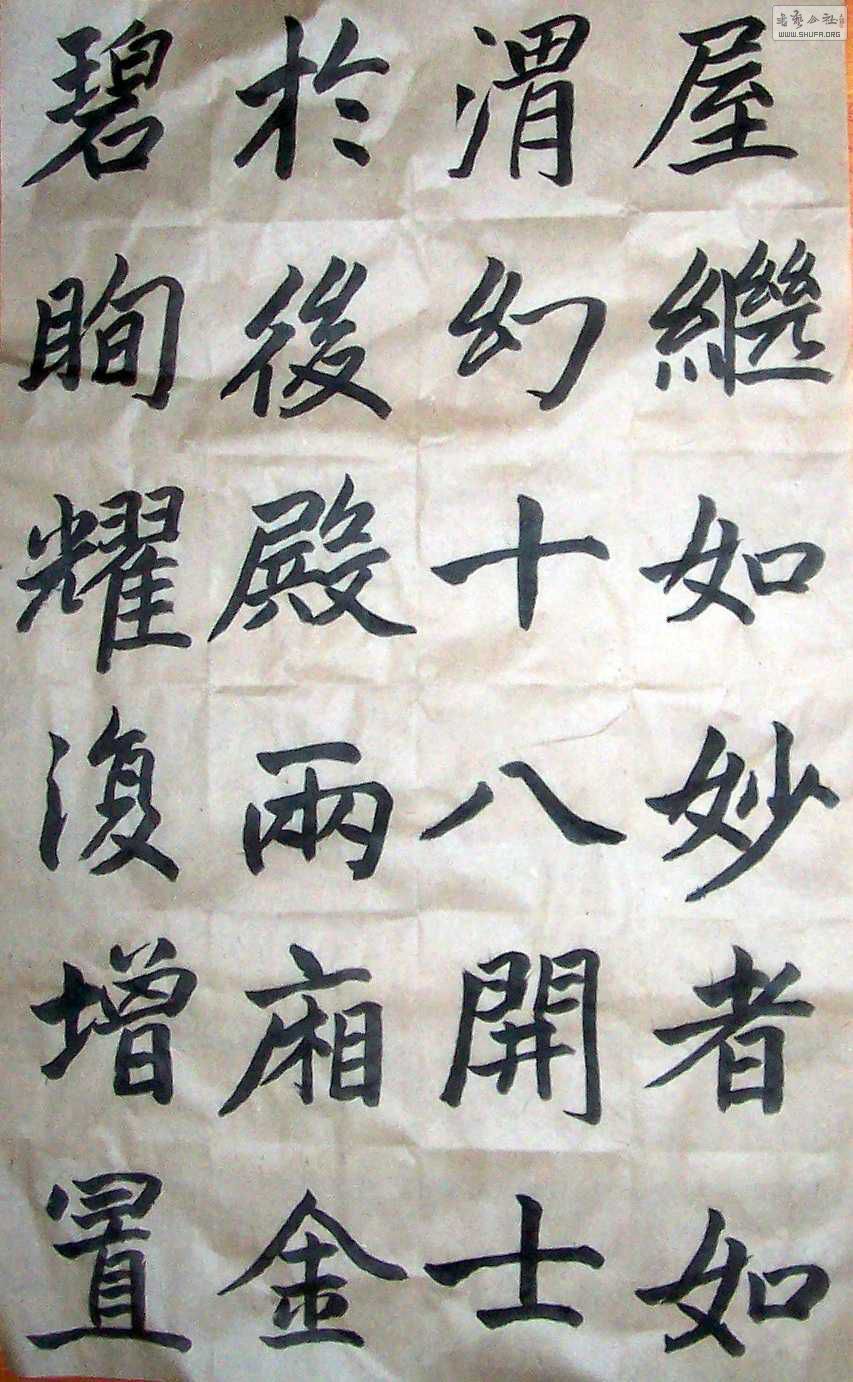 屋繼如妙者如
渭幻十八開士
於後殿兩廂金
碧眴耀復增置
WWW.SHUFA.ORG